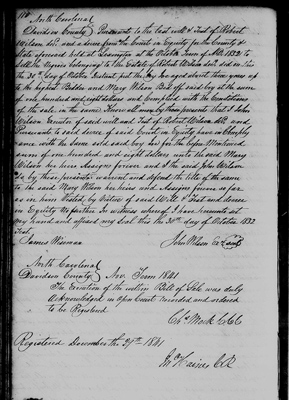 North Carolina
Davidson County Pursuant to the last will & Test of Robert
Wilson decd and a decree from the Court in Equity for the County &
State aforesaid held at Lexington at the Term of AD. 1832 to
sell the Negroes belonging to the Estate of Robert Wilson decd did on the
the 30th day of October Instant put the boy aged about three years up
to the highest Bidder and Mary Wilson Bid off said boy at the sum
of one hundred and eight dollars and complied with the Conditions
of the sale in due manner. Know all men by these presents that I John
Wilson Executor of said will and Test of Robert Wilson decd and
Pursuant to said decree of said Court in Equity have in Compli
ance with the same sold said boy for the before mentioned
sum of one hundred and eight dollars unto the said Mary
Wilson her heirs Assigns forever and I the said John Wilson
by these presents warrant and defend the title of the same
to the said Mary Wilson her heirs and Assigns forever so far
as in him Vested by Virtue of said Will & Test and decree
in Equity In witness whereof I have hereunto set
my hand and affixed my Seal this the 30th day of October 1832
Test
James Wiseman John Wilson
North Carolina
Davidson County Nov. Term 1841
The Execution of the within Bill of Sale was duly
Acknowledged in Open Court recorded and ordered
to be Registered
Chs Mock
Registered December 29th 1841
Haines